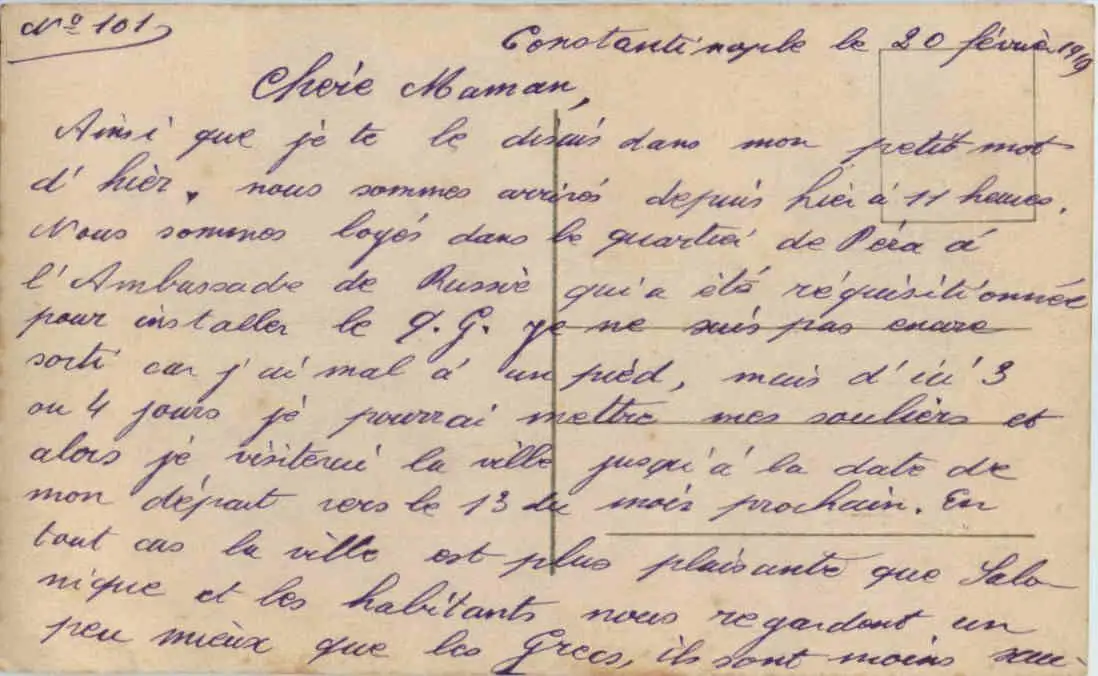 Nº 101
Constantinople le 20 février 1919
Chérie Maman,
Ainsi que je te le disais dans mon petit mot
d'hier, nous sommes arrivés depuis hier à 11 heures.
Nous sommes logés dans le quartier de Péra à
l'Ambassade de Russie qui a été réquisitionnée
pour installer le Q.G. Je ne suis pas encore
sorti car j'ai mal à un pied, mais d'ici 3
ou 4 jours je pourrai mettre mes souliers et
alors je visiterai la ville jusqu'à la date de
mon départ vers le 13 du mois prochain. En
tout cas la ville est plus plaisante que Salo
nique et les habitants nous regardent un
peu mieux que les Grecs, ils sont moins sau-